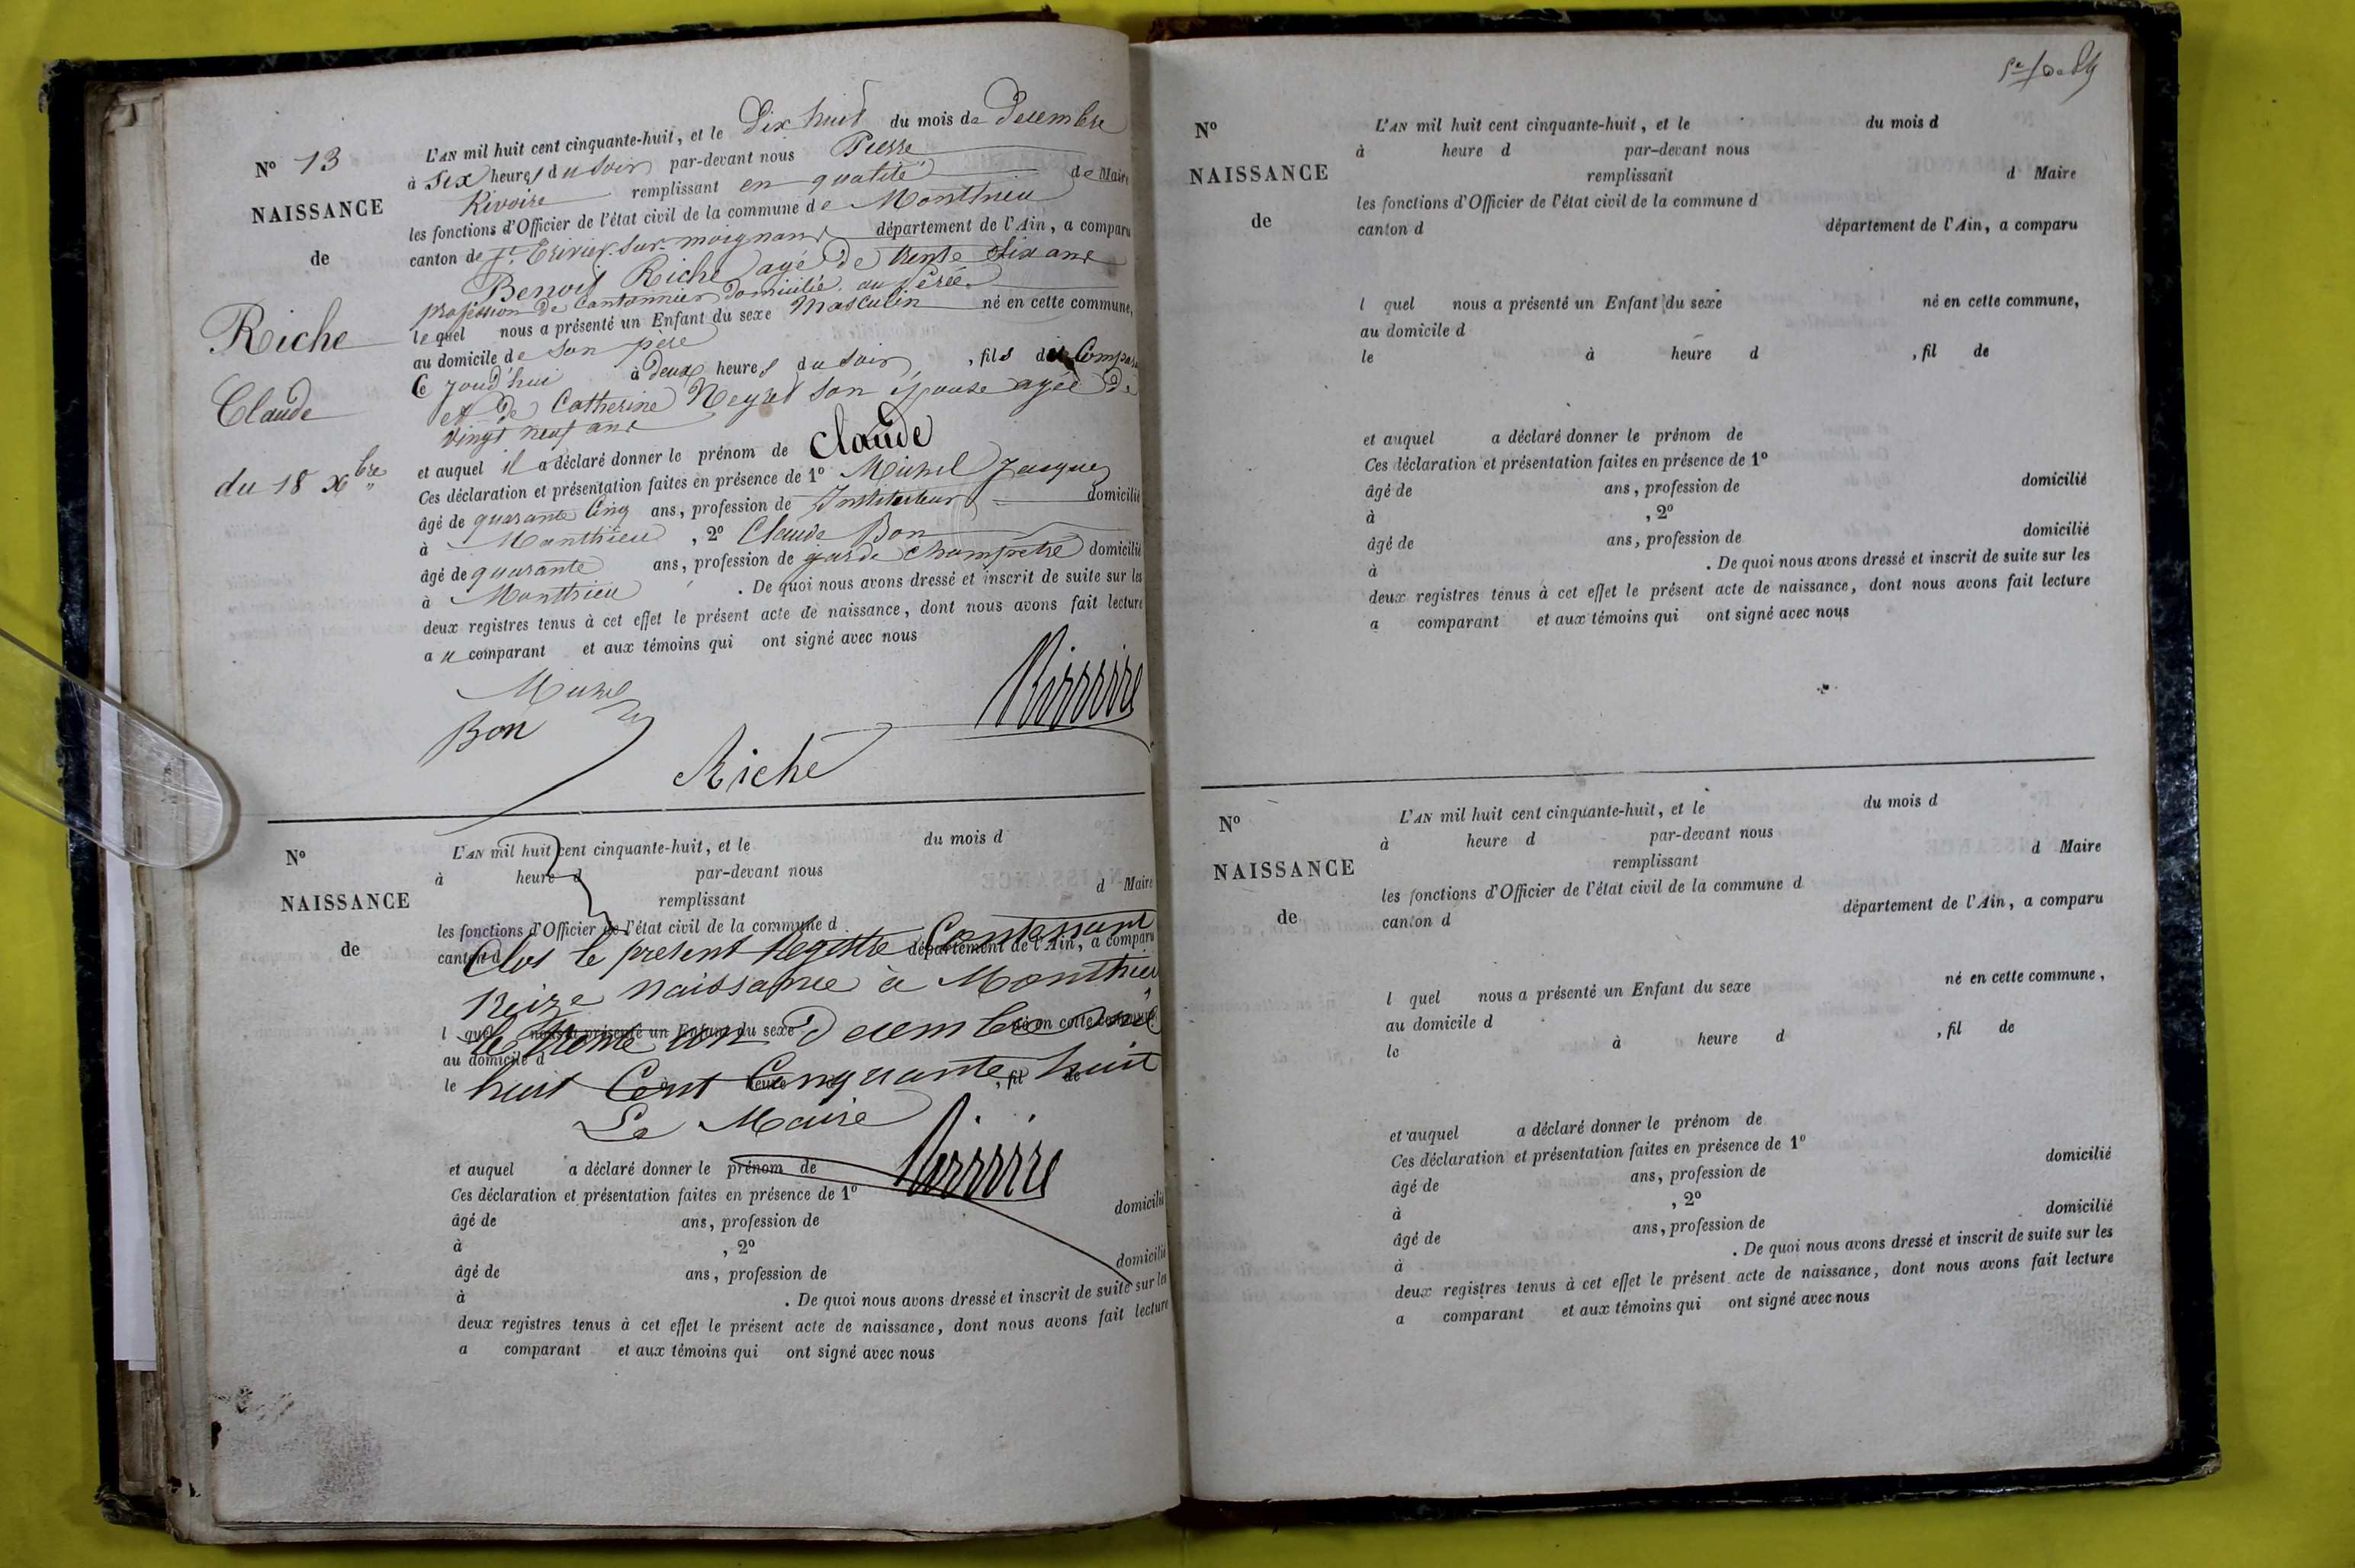 N° 13
NAISSANCE
de
Riche
Claude
du 18 Xbre
L'AN mil huit cent cinquante-huit, et le Dix huit du mois de Decembre
à Six heures du Soir par-devant nous Pierre
Rivoire remplissant en qualité de Maire
les fonctions d'Officier de l'état civil de la commune de Monthieu
canton de St. Trivier-sur-moignans département de l'Ain, a comparu
Benoit Riche agé de trente Six ans
profession de Cantonnier domicilié
lequel nous a présenté un Enfant du sexe Masculin né en cette commune,
au domicile de Son père
Ce jourd'hui à deux heures du Soir, fils du Compar
et de Catherine Neyret son épouse agée de
vingt neuf ans
et auquel il a déclaré donner le prénom de Claude
Ces déclaration et présentation faites en présence de 1° Michel Jacques
âgé de quarante Cinq ans, profession de Instituteur domicilié
à Monthieu, 2° Claude Bon
âgé de quarante ans, profession de garde Champetre domicilié
à Monthieu. De quoi nous avons dressé et inscrit de suite sur les
deux registres tenus à cet effet le présent acte de naissance, dont nous avons fait lecture
au comparant et aux témoins qui ont signé avec nous
Michel
Rivoire
Bon
Riche
N°
NAISSANCE
de
L'AN mil huit cent cinquante-huit, et le du mois d
à heure d par-devant nous
remplissant d Maire
les fonctions d'Officier de l'état civil de la commune d
canton d département de l'Ain, a comparu
Clos le présent Registre Contenant
treize naissance à Monthieu
l quel nous a présenté un Enfant du sexe né en cette commune,
le trente un Decembre mil
au domicile d
le à heure d , fil de
huit Cent Cinquante huit
Le Maire
Rivoire
et auquel a déclaré donner le prénom de
Ces déclaration et présentation faites en présence de 1°
âgé de ans, profession de domicilié
à , 2°
âgé de ans, profession de domicilié
à . De quoi nous avons dressé et inscrit de suite sur les
deux registres tenus à cet effet le présent acte de naissance, dont nous avons fait lecture
a comparant et aux témoins qui ont signé avec nous
N°
NAISSANCE
de
L'AN mil huit cent cinquante-huit, et le du mois d
à heure d par-devant nous
remplissant d Maire
les fonctions d'Officier de l'état civil de la commune d
canton d département de l'Ain, a comparu
l quel nous a présenté un Enfant du sexe né en cette commune,
au domicile d
le à heure d , fil de
et auquel a déclaré donner le prénom de
Ces déclaration et présentation faites en présence de 1°
âgé de ans, profession de domicilié
à , 2°
âgé de ans, profession de domicilié
à . De quoi nous avons dressé et inscrit de suite sur les
deux registres tenus à cet effet le présent acte de naissance, dont nous avons fait lecture
a comparant et aux témoins qui ont signé avec nous
N°
NAISSANCE
de
L'AN mil huit cent cinquante-huit, et le du mois d
à heure d par-devant nous
remplissant d Maire
les fonctions d'Officier de l'état civil de la commune d
canton d département de l'Ain, a comparu
l quel nous a présenté un Enfant du sexe né en cette commune,
au domicile d
le à heure d , fil de
et auquel a déclaré donner le prénom de
Ces déclaration et présentation faites en présence de 1°
âgé de ans, profession de domicilié
à , 2°
âgé de ans, profession de domicilié
à . De quoi nous avons dressé et inscrit de suite sur les
deux registres tenus à cet effet le présent acte de naissance, dont nous avons fait lecture
a comparant et aux témoins qui ont signé avec nous